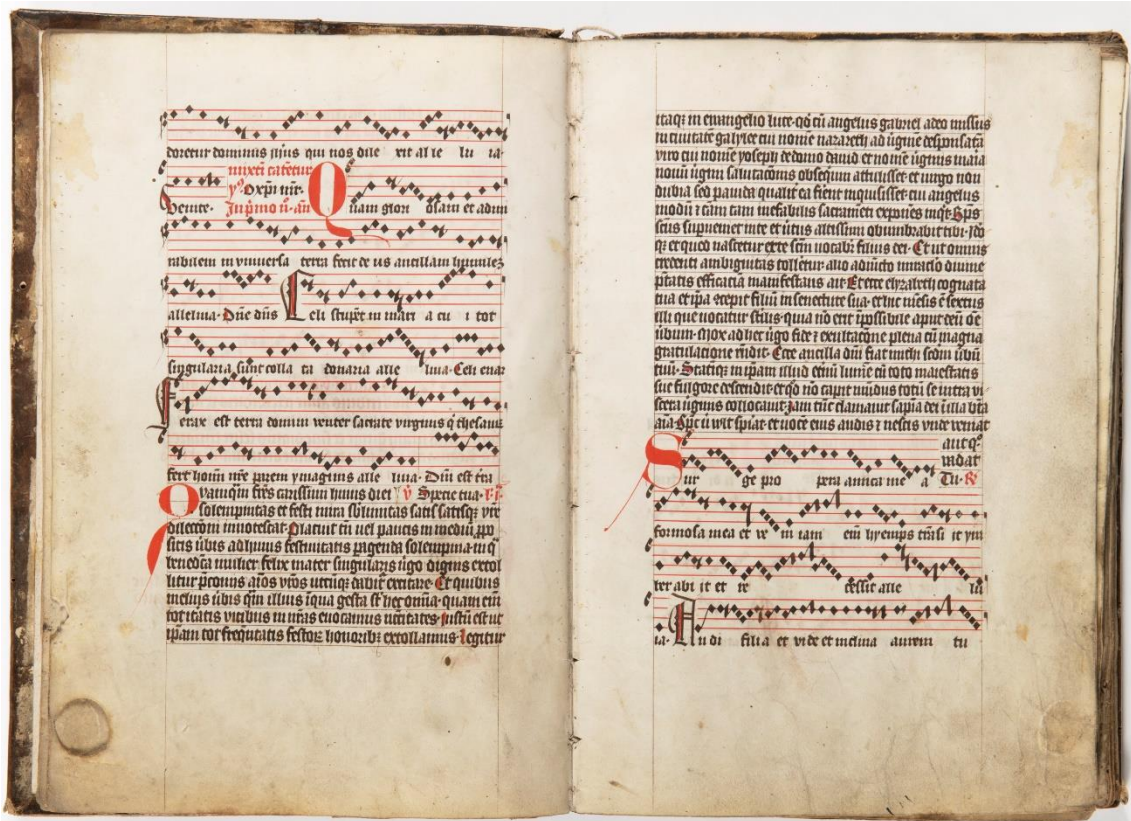 doretur dominus ihus qui nos dile xit al le lu ia
nuxti cātetur
Oxp̄i nr̄e·
Venite· In primo n̄· an̄ Quam glori osam et adm
rabilem in vniuersa terra fecit de us ancillam humilez
alleluia· Dn̄e dn̄s Celi stupēt in mari a cu i tot
singularia sunt colla ta donaria alle luia· Celi enar
Ferax est terra domini venter sacrate virginis q̄ thesaur
fert homī nr̄e ymaginis alle luia· Dn̄i est tr̄a
Quamqm̄ frēs carissimi huius diei v̄ Specie tua·
solempnitas et festi mira sb̄limitas satis satisqz vr̄e
dilectōni innotescat· Placuit tn̄ vel paucis in mediū ꝓpo
sitis vobis ad huius festiuitatis
benedc̄a mulier felix mater singularis v̄go dignius extol
litur p̄coniis aīos vr̄os vtcūqz dabit̄ excitare· Et quibus
melius vobis qm̄ illius īqua gesta st̄ hec om̄ia· quam etm̄
tot itatis vicibus in nr̄as euocamus Iustū est ut
ip̄am tot freqūtatis festorz honoribz extollamus· Legitur
itaqz in euangelio luce· qd̄ cū angelus gabriel a deo missus
in ciuitate galylee cui nomē nazareth ad v̄ginē desponsatā
viro cui nomē yoseph de domo dauid et nomē v̄ginis maīa
nouū v̄gini salutacōnis obsequiū attulisset· et virgo non
dubia sed pauida qualit̄ ea fierent inquisisset· cui angelus
modū t̄ cām tam inefabilis sacramēti exponēs inqt· Sp̄s
scūs supueniet in te et virtus altissimi obumbrabit tibi· Ido
qz et quod nascetur ex te scm̄ vocabr̄ filius dei· Et ut omnis
credenti ambiguitas tolletur· alio adiūcto miraclo diuine
ptātis efficaciā manifestans ait· Et ecce elyzabeth cognata
tua et ip̄a ccepit filiū in senectute sua· et hic mēsis ē sextus
illi que uocatur st̄ilis· quia nō erit īpossibile aput deū oē
v̄bum· Mox ad hec v̄go fide t̄ exultacōne plena cū magna
gratulacione rn̄dit· Ecce ancilla dn̄i fiat michi scdm̄ v̄bū
tuū· Statiqz in ip̄am illud etnū lumē cū toto maiestatis
sue fulgore descendit· et qd̄ nō capit mūdus totū se intra vi
scera v̄ginis collocauit· Iam tūc clamauit sapīa dei ī illa bt̄a
aīa· Sp̄c ū wlt spīat· et uocē eius audis t̄ nescis vnde veniat
aut qᵒ
vadat
Sur ge pro pera amica me a Tu· R̄
formosa mea et ve ni iam eni̅ hyemps trāsi it ym
ber abi it et re cessit alle lu
ia· Au di filia et vide et inclina aurem tu